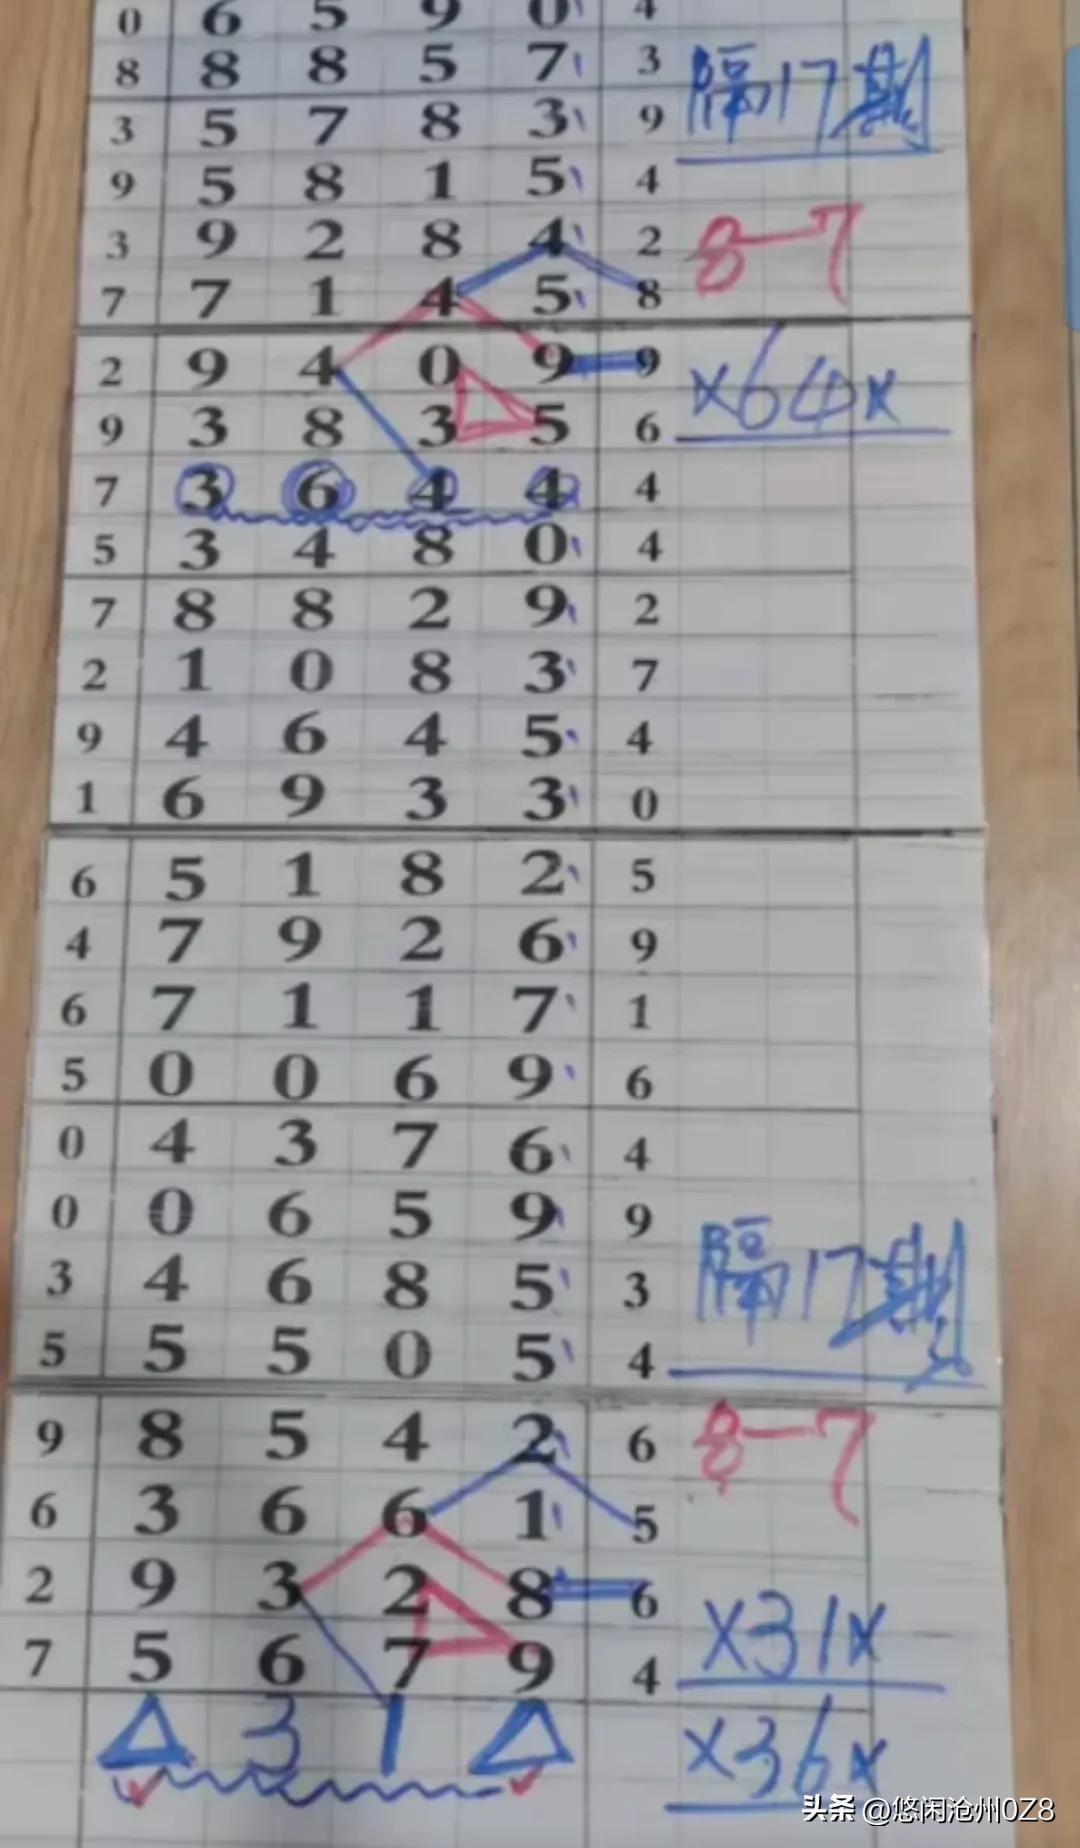 0 6 5 9 0 4
8 8 8 5 7 3
隔17期
3 5 7 8 3 9
9 5 8 1 5 4
3 9 2 8 4 2
8-7
7 7 1 4 5 8
2 9 4 0 9 9
×64×
9 3 8 3 5 6
7 3 6 4 4 4
5 3 4 8 0 4
7 8 8 2 9 2
2 1 0 8 3 7
9 4 6 4 5 4
1 6 9 3 3 0
6 5 1 8 2 5
4 7 9 2 6 9
6 7 1 1 7 1
5 0 0 6 9 6
0 4 3 7 6 4
0 0 6 5 9 9
隔17期
3 4 6 8 5 3
5 5 5 0 5 4
9 8 5 4 2 6
8-7
6 3 6 6 1 5
2 9 3 2 8 6
×31×
7 5 6 7 9 4
△ 3 1 △
×36×
头条 @悠闲沧州0Z8